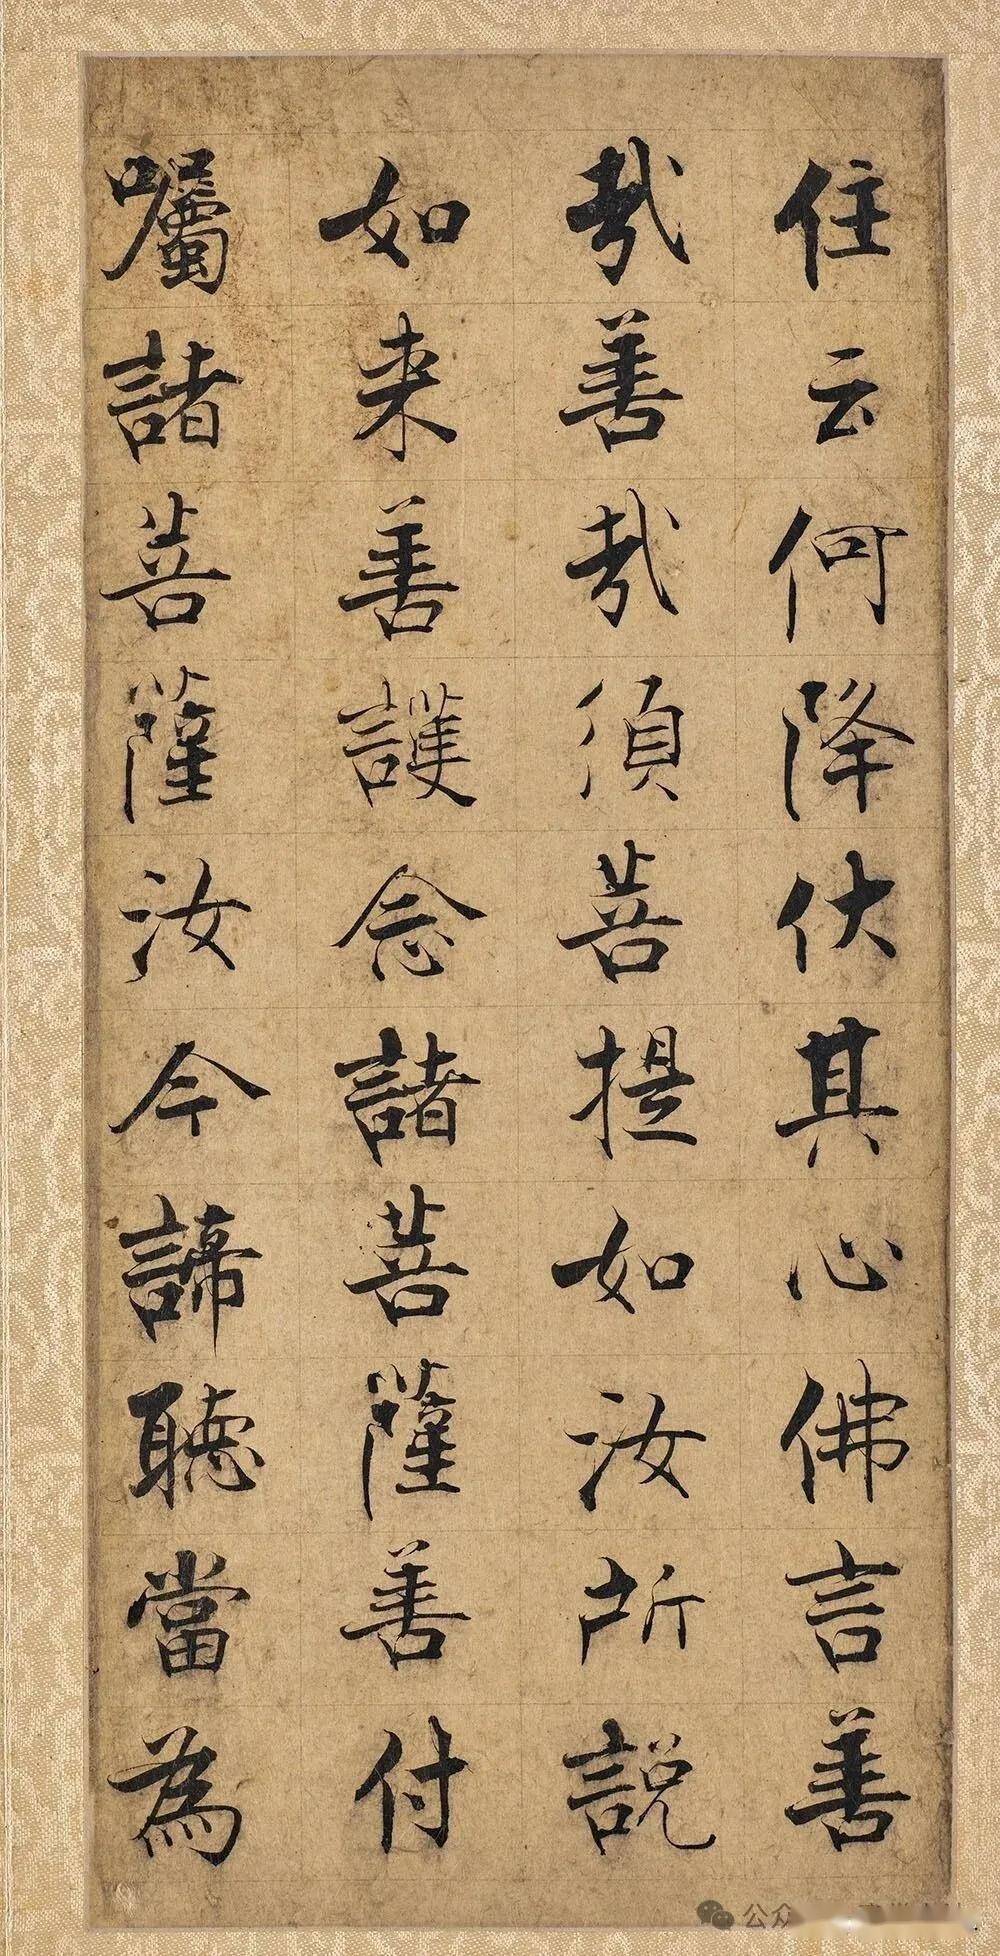 住云何降伏其心佛言善
哉善哉須菩提如汝所說
如来善護念諸菩薩善付
囑諸菩薩汝今諦聽當為
公众